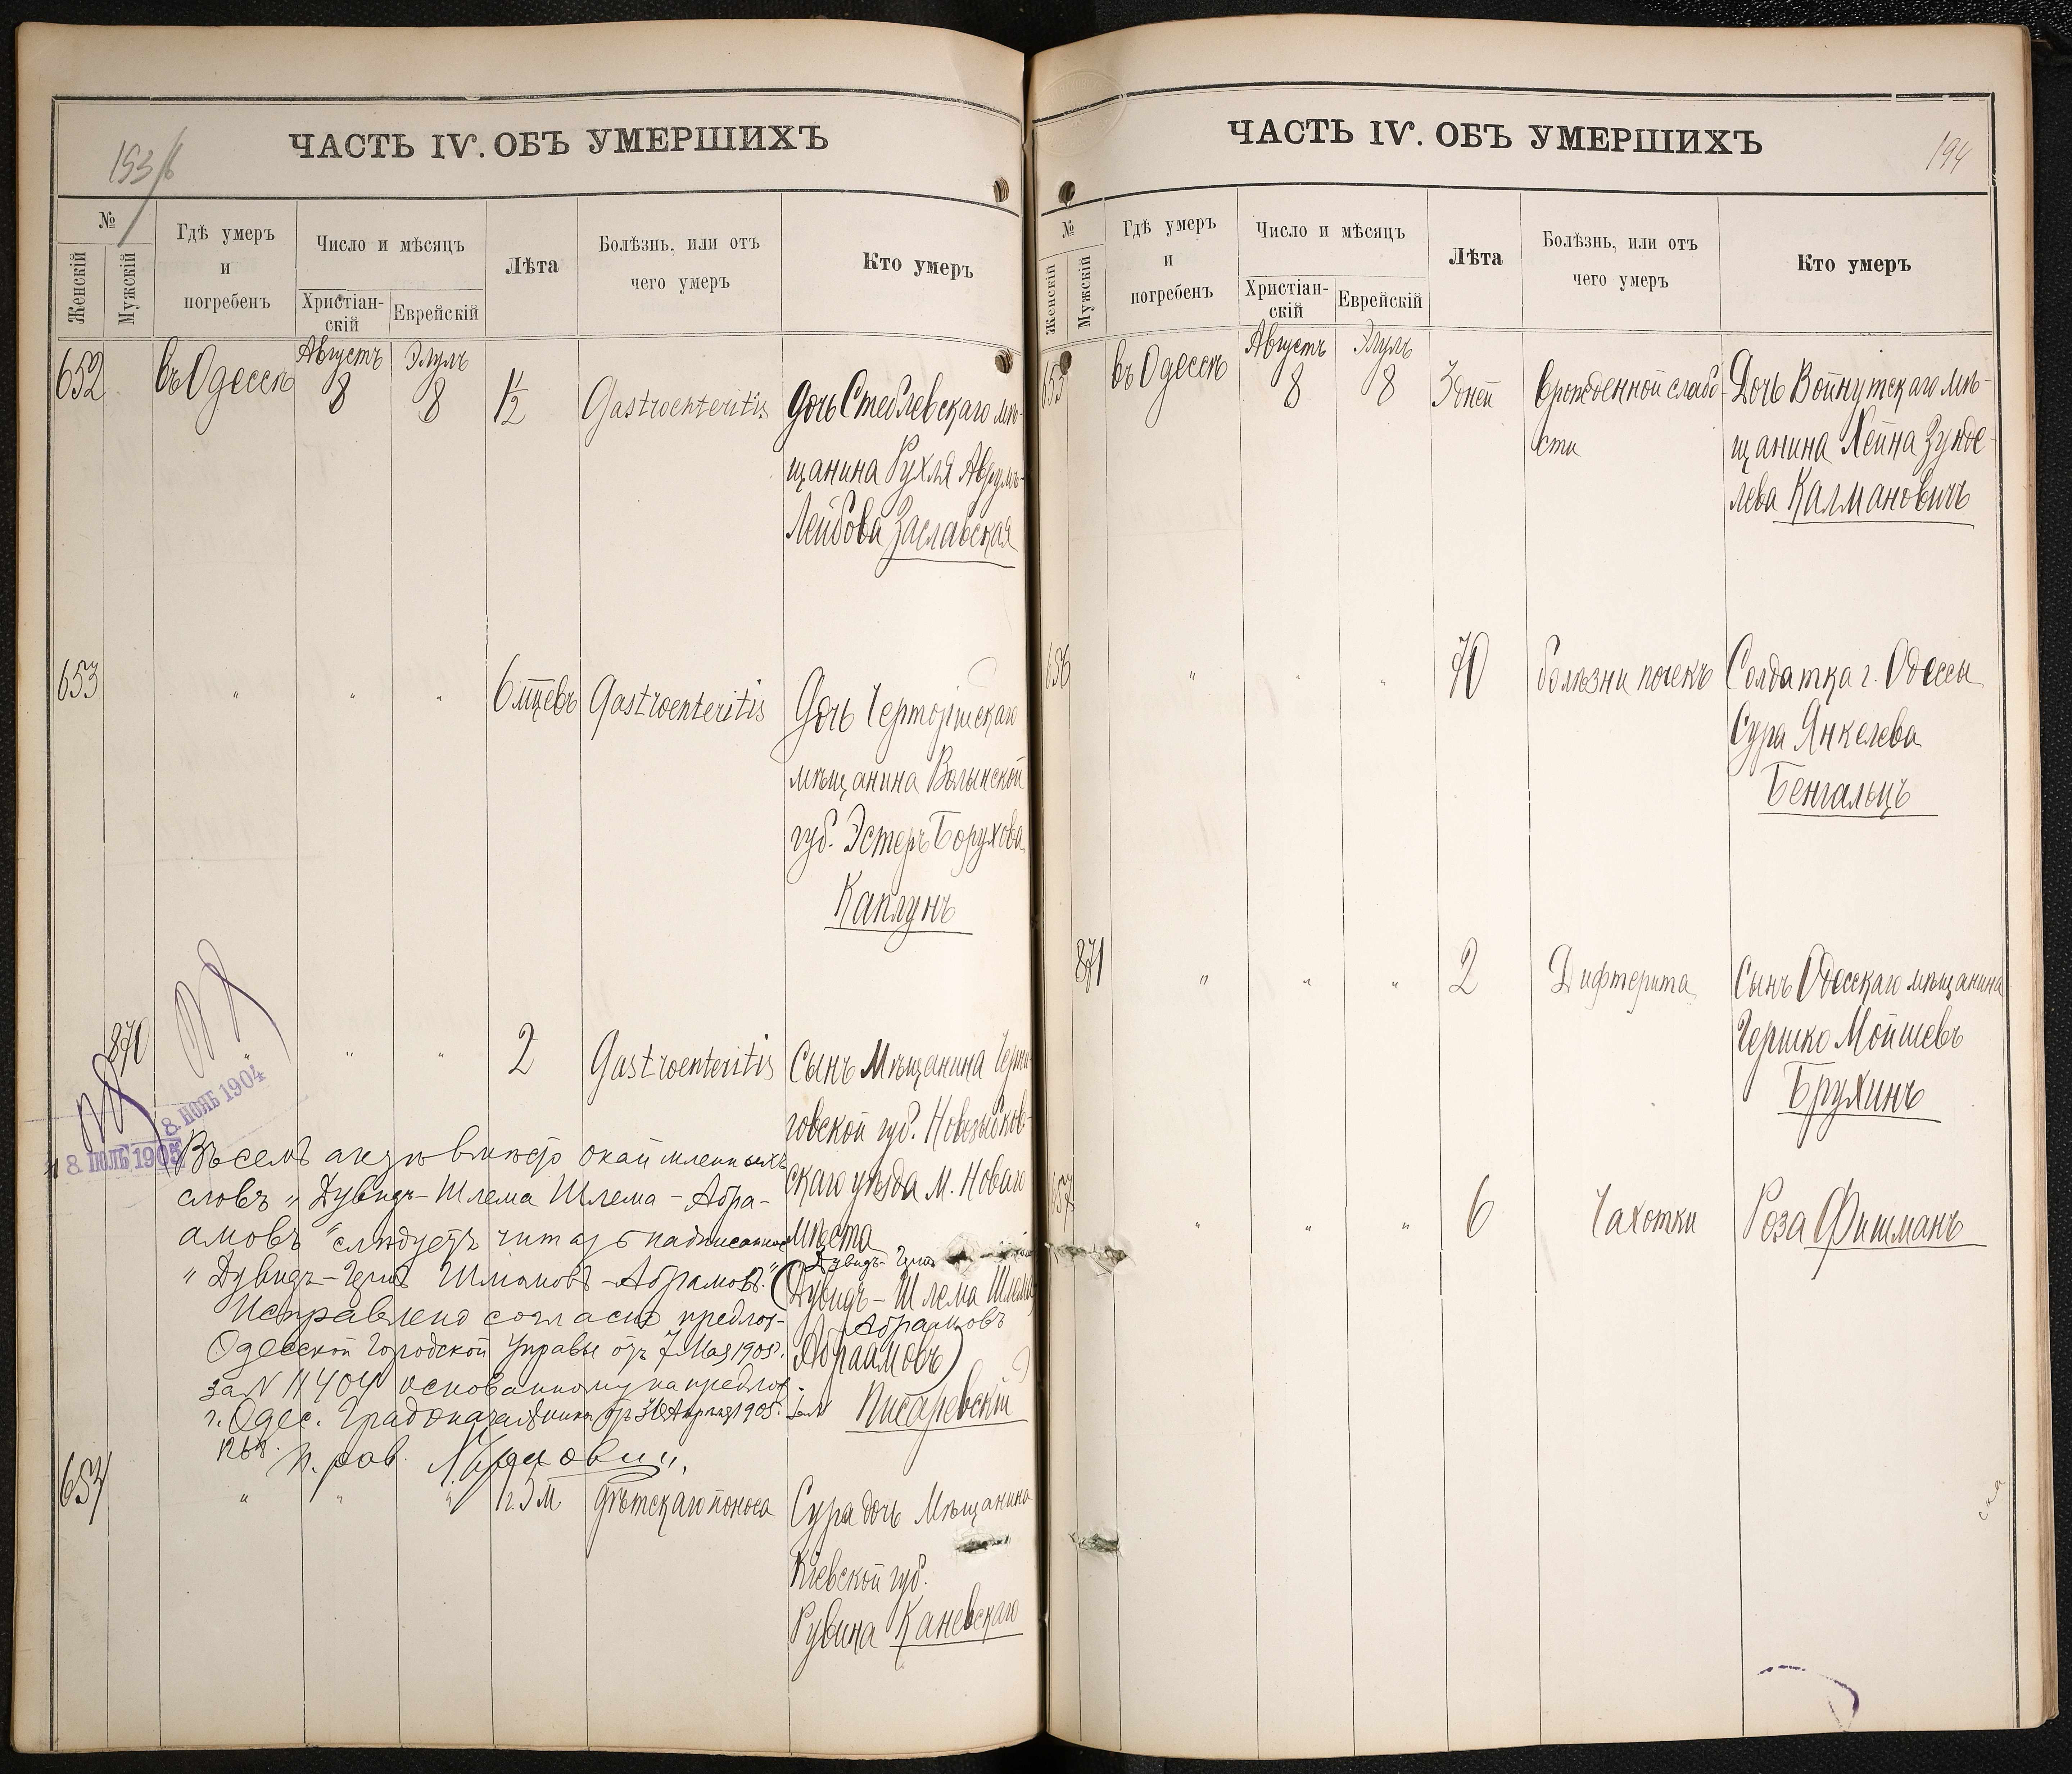 193/б
ЧАСТЬ IV. ОБЪ УМЕРШИХЪ
№
Женскій
Мужскій
Гдѣ умеръ
и
погребенъ
Число и мѣсяцъ
Христіан-
скій
Еврейскій
Лѣта
Болѣзнь, или отъ
чего умеръ
Кто умеръ
652
въ Одессѣ
Августъ
8
Элулъ
8
1½
Gastroenteritis
Дочь Стеблевскаго мѣ-
щанина Рухля Аврумъ-
Лейбова Заславская
653
"
"
"
6 мцевъ
Gastroenteritis
Дочь
мѣщанина Волынской
губ. Эстеръ Борухова
Каплунъ
870
"
"
"
2
Gastroenteritis
Сынъ Мѣщанина Черни-
говской губ. Новозыбков-
скаго уѣзда М. Новаго
Мѣста
Дувидъ-Герш
(Дувидъ-Шлема Шлема
Абрамовъ
Абраамовъ)
Писаревскій
8. НОЯБ 1904
8. ІЮЛЬ 1905
Въ семъ актѣ вмѣсто окаймленныхъ
словъ „Дувидъ-Шлема Шлема-Абра-
амовъ" слѣдуетъ читать надписанное
"Дувидъ-Герш -Абрамовъ."
Исправлено согласно предлож-
Одесской Городской Управы отъ 7 Мая 1905г.
за N 11404 основанному на предлож.
г. Одес. Градоначальника отъ 30 Апрѣля 1905г. за N
п. рав.
654
"
"
"
1г. 3М
дѣтскаго поноса
Сура дочь Мѣщанина
Кіевской губ.
Рувина Каневскаго
194
ЧАСТЬ IV. ОБЪ УМЕРШИХЪ
№
Женскій
Мужскій
Гдѣ умеръ
и
погребенъ
Число и мѣсяцъ
Христіан-
скій
Еврейскій
Лѣта
Болѣзнь, или отъ
чего умеръ
Кто умеръ
655
въ Одессѣ
Августъ
8
Элулъ
8
3 дней
врожденной слабо-
сти
Дочь Войнутскаго мѣ-
щанина Хейна Зунде-
лева Калмановичъ
656
"
"
"
70
болѣзни почекъ
Солдатка г. Одессы
Сура Янкелева
Бенгальцъ
871
"
"
"
2
Дифтерита
Сынъ Одесскаго мѣщанина
Гершко Мойшевъ
Брухинъ
657
"
"
"
6
Чахотки
Роза Фишманъ